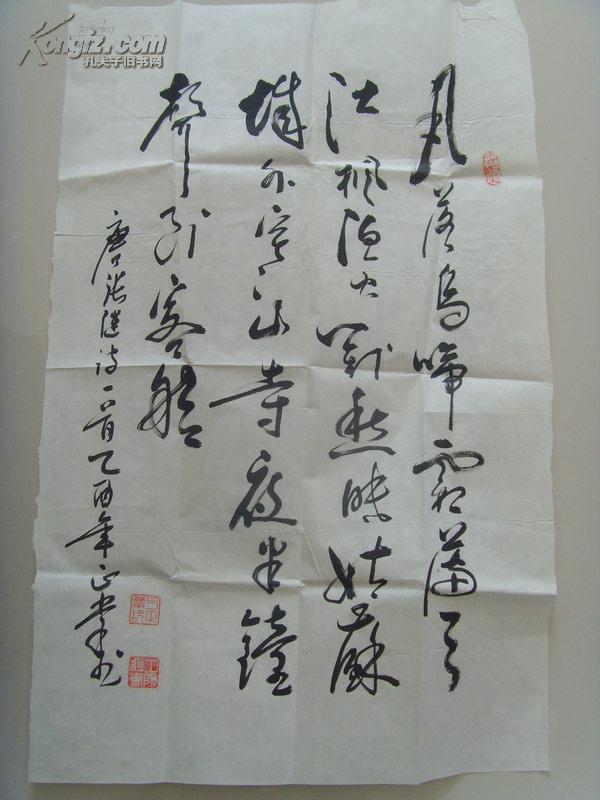 Kongfz.com
孔夫子旧书网
月落烏啼霜滿天
江楓漁火對愁眠姑蘇
城外寒山寺夜半鐘
聲到客船
唐張继诗一首乙酉年正